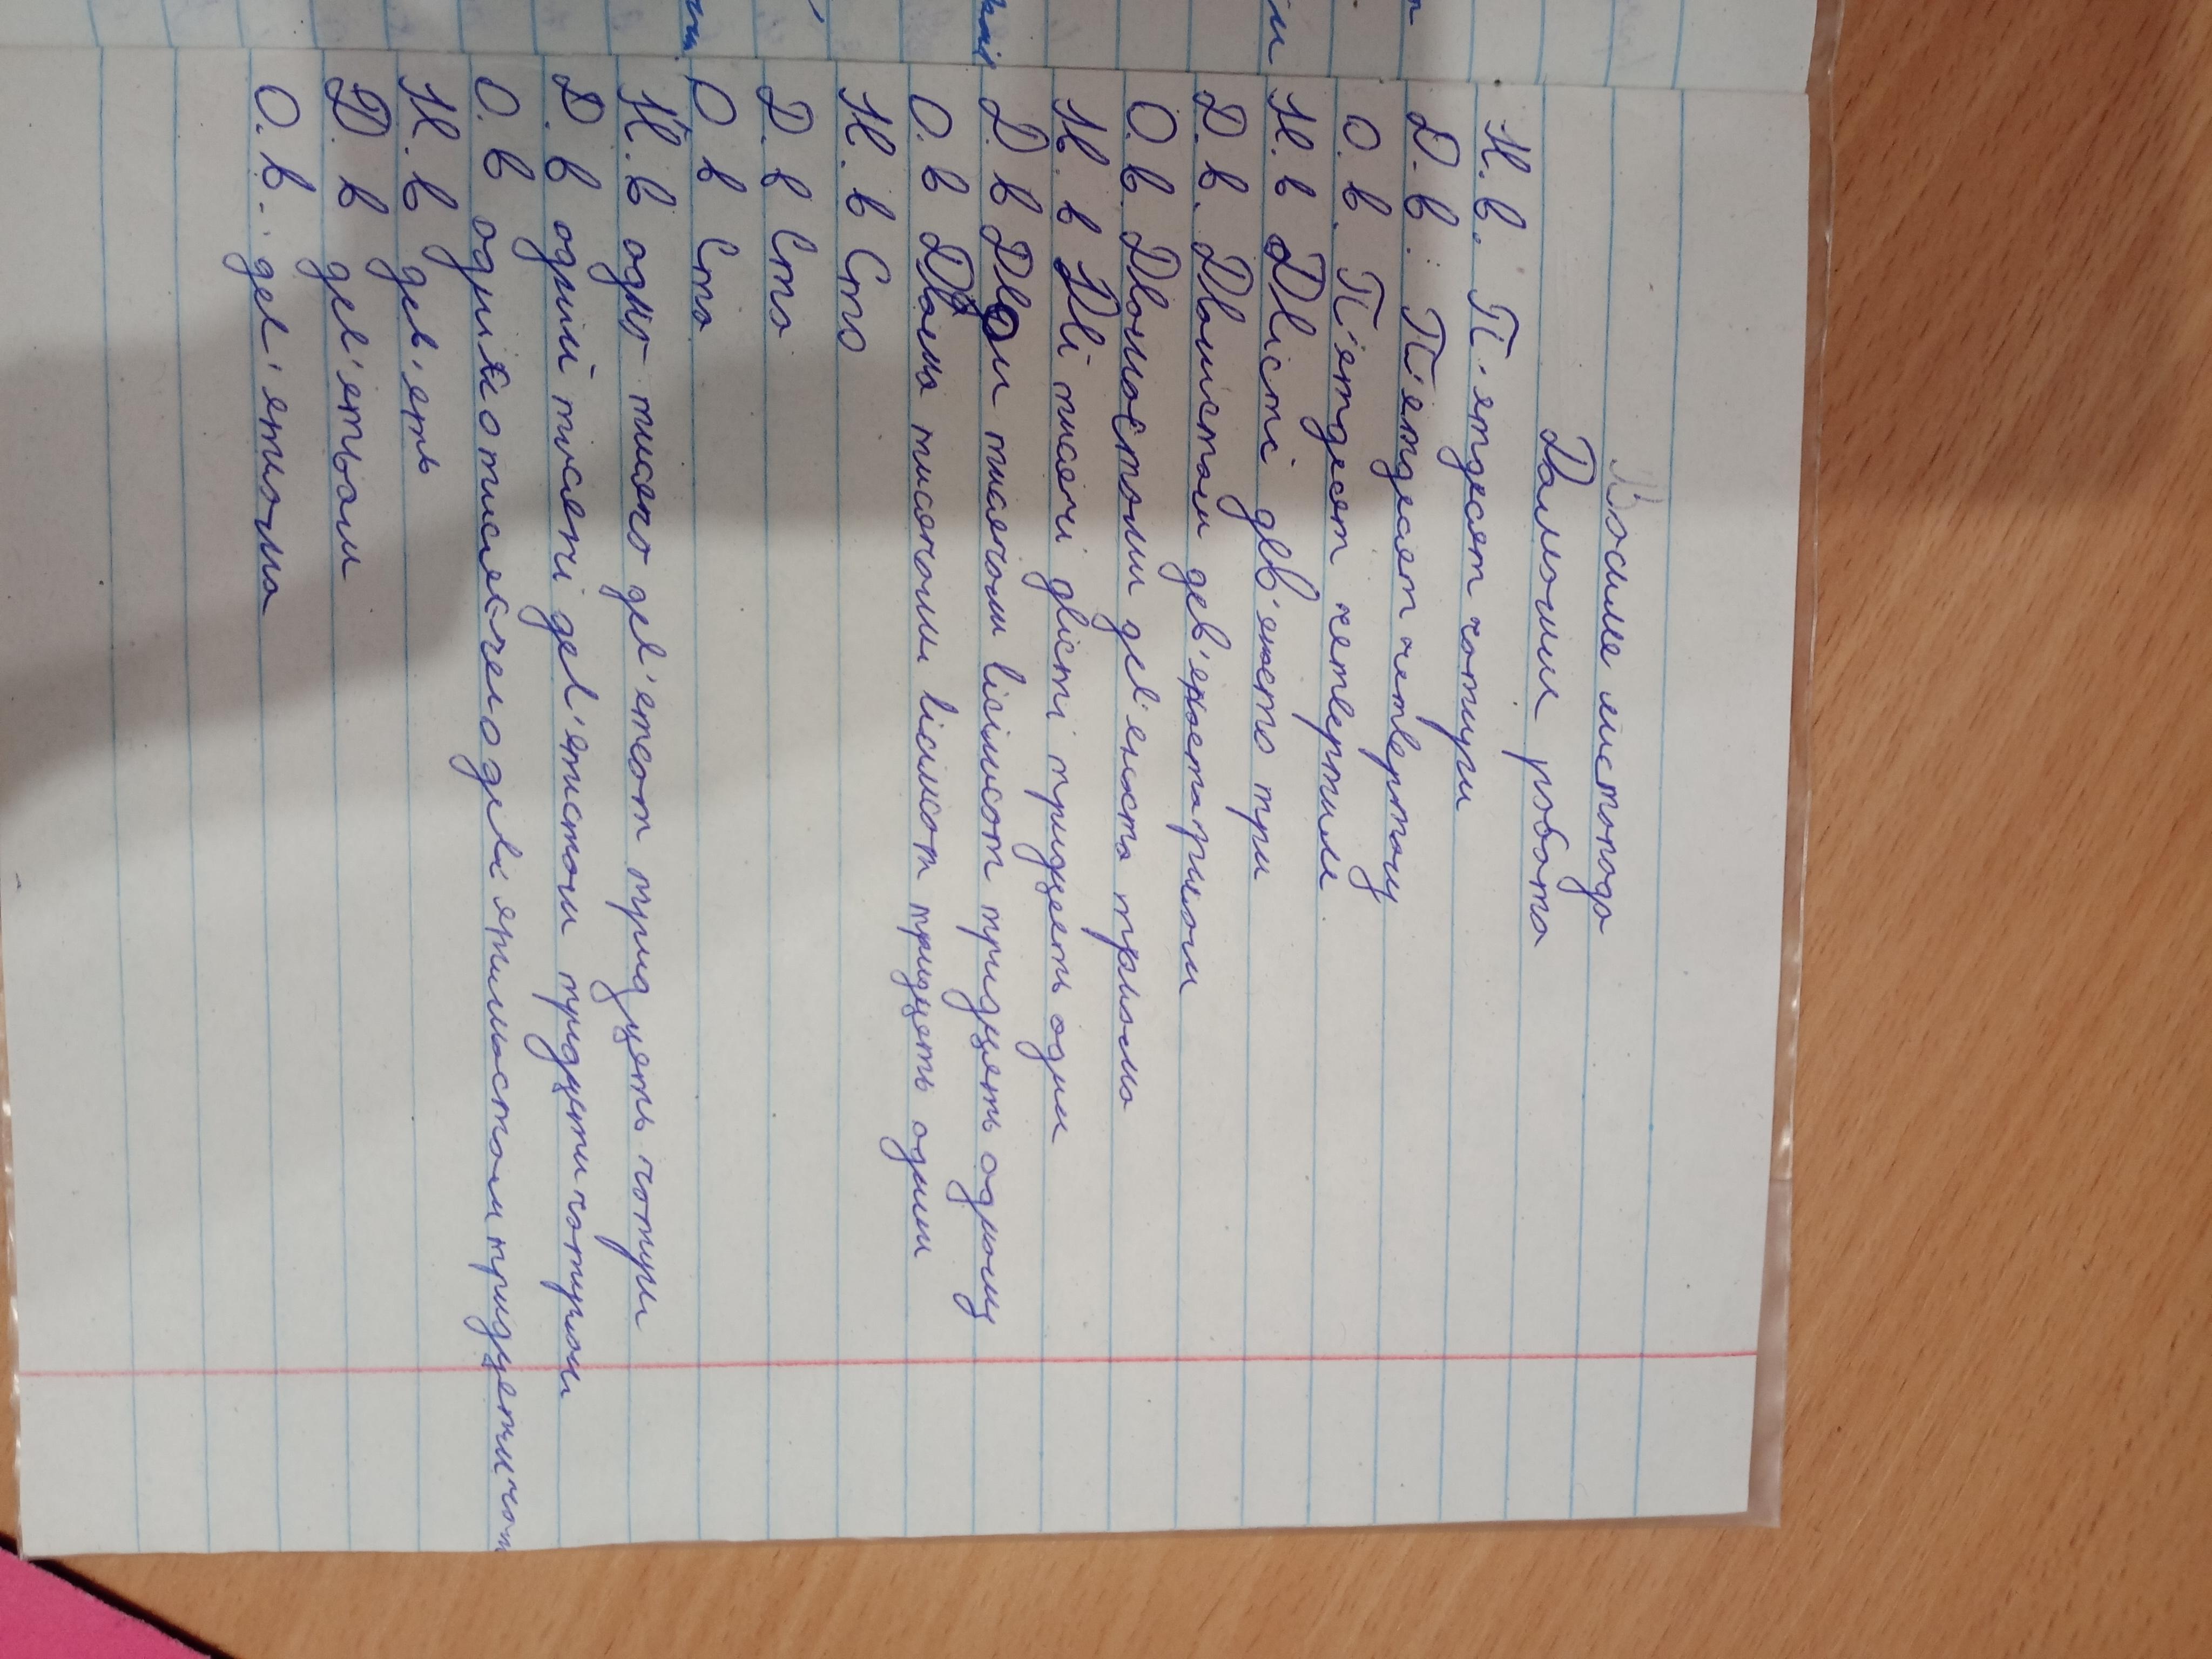 Восьме листопада
Домашня робота
Н. в. П'ятдесят чотири
Д. в. П'ятдесят четвертому
О. в. П'ятдесят четвертим
Н. в Двісті дев'яносто три
Д. в. Двомстам дев'яноста трьом
О. в. Двомастами дев'яноста трьома
Н. в Дві тисячі двісті тридцять один
Д. в Двом тисячам вісімсот тридцять одному
О. в Двома тисячами вісімсот тридцять одним
Н. в Сто
Д. в Ста
О в Ста
Н. в одна тисяча дев'ятсот тридцять чотири
Д. в одній тисячі дев'ятистам тридцяти чотирьом
О. в однією тисячею дев'ятимастами тридцяти чот
Н. в дев'ять
Д. в дев'ятьом
О. в. дев'ятьма